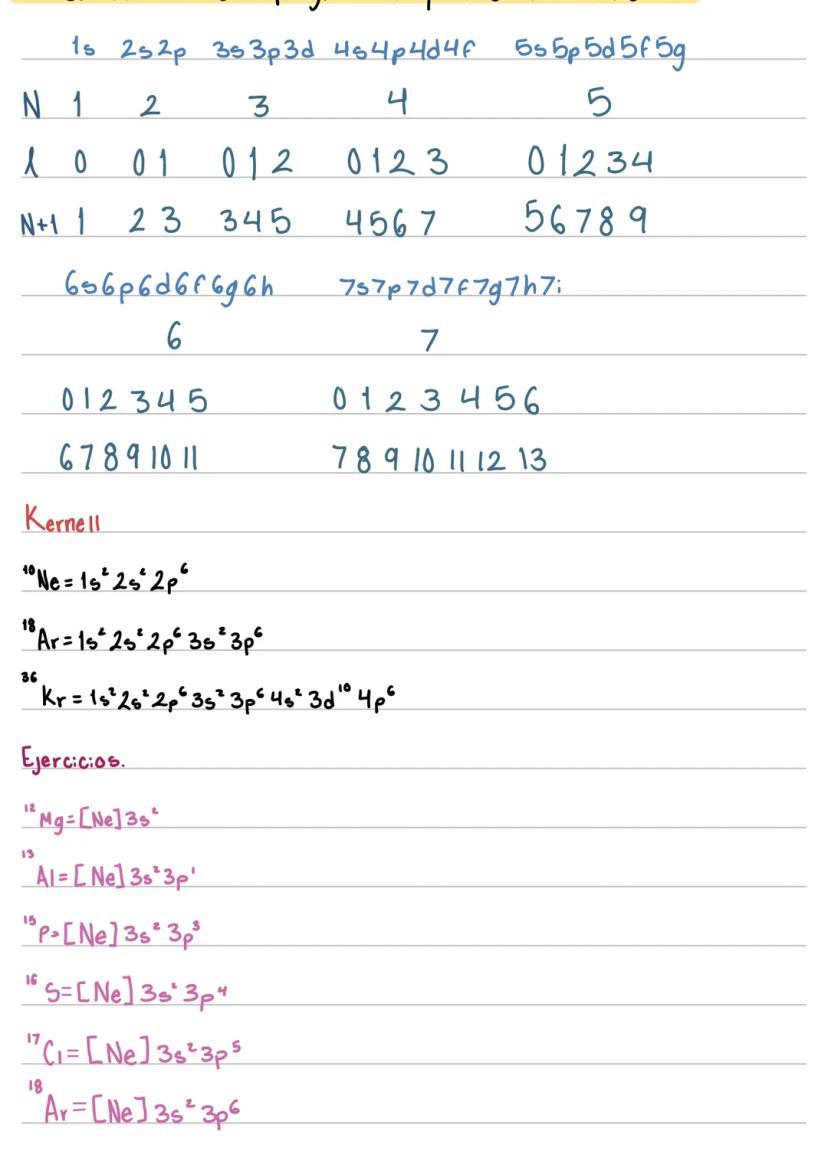 1s 2s2p 3s3p3d 4s4p4d4f 5s5p5d5f5g
N 1 2 3 4 5
l 0 0 1 0 1 2 0 1 2 3 0 1 2 3 4
N+l 1 2 3 3 4 5 4 5 6 7 5 6 7 8 9
6s6p6d6f6g6h 7s7p7d7f7g7h7i
6 7
0 1 2 3 4 5 0 1 2 3 4 5 6
6 7 8 9 10 11 7 8 9 10 11 12 13
Kernell
¹⁰Ne = 1s² 2s² 2p⁶
¹⁸Ar = 1s² 2s² 2p⁶ 3s² 3p⁶
³⁶Kr = 1s² 2s² 2p⁶ 3s² 3p⁶ 4s² 3d¹⁰ 4p⁶
Ejercicios.
¹²Mg = [Ne] 3s²
¹³Al = [Ne] 3s² 3p¹
¹⁵P = [Ne] 3s² 3p³
¹⁶S = [Ne] 3s² 3p⁴
¹⁷Cl = [Ne] 3s² 3p⁵
¹⁸Ar = [Ne] 3s² 3p⁶